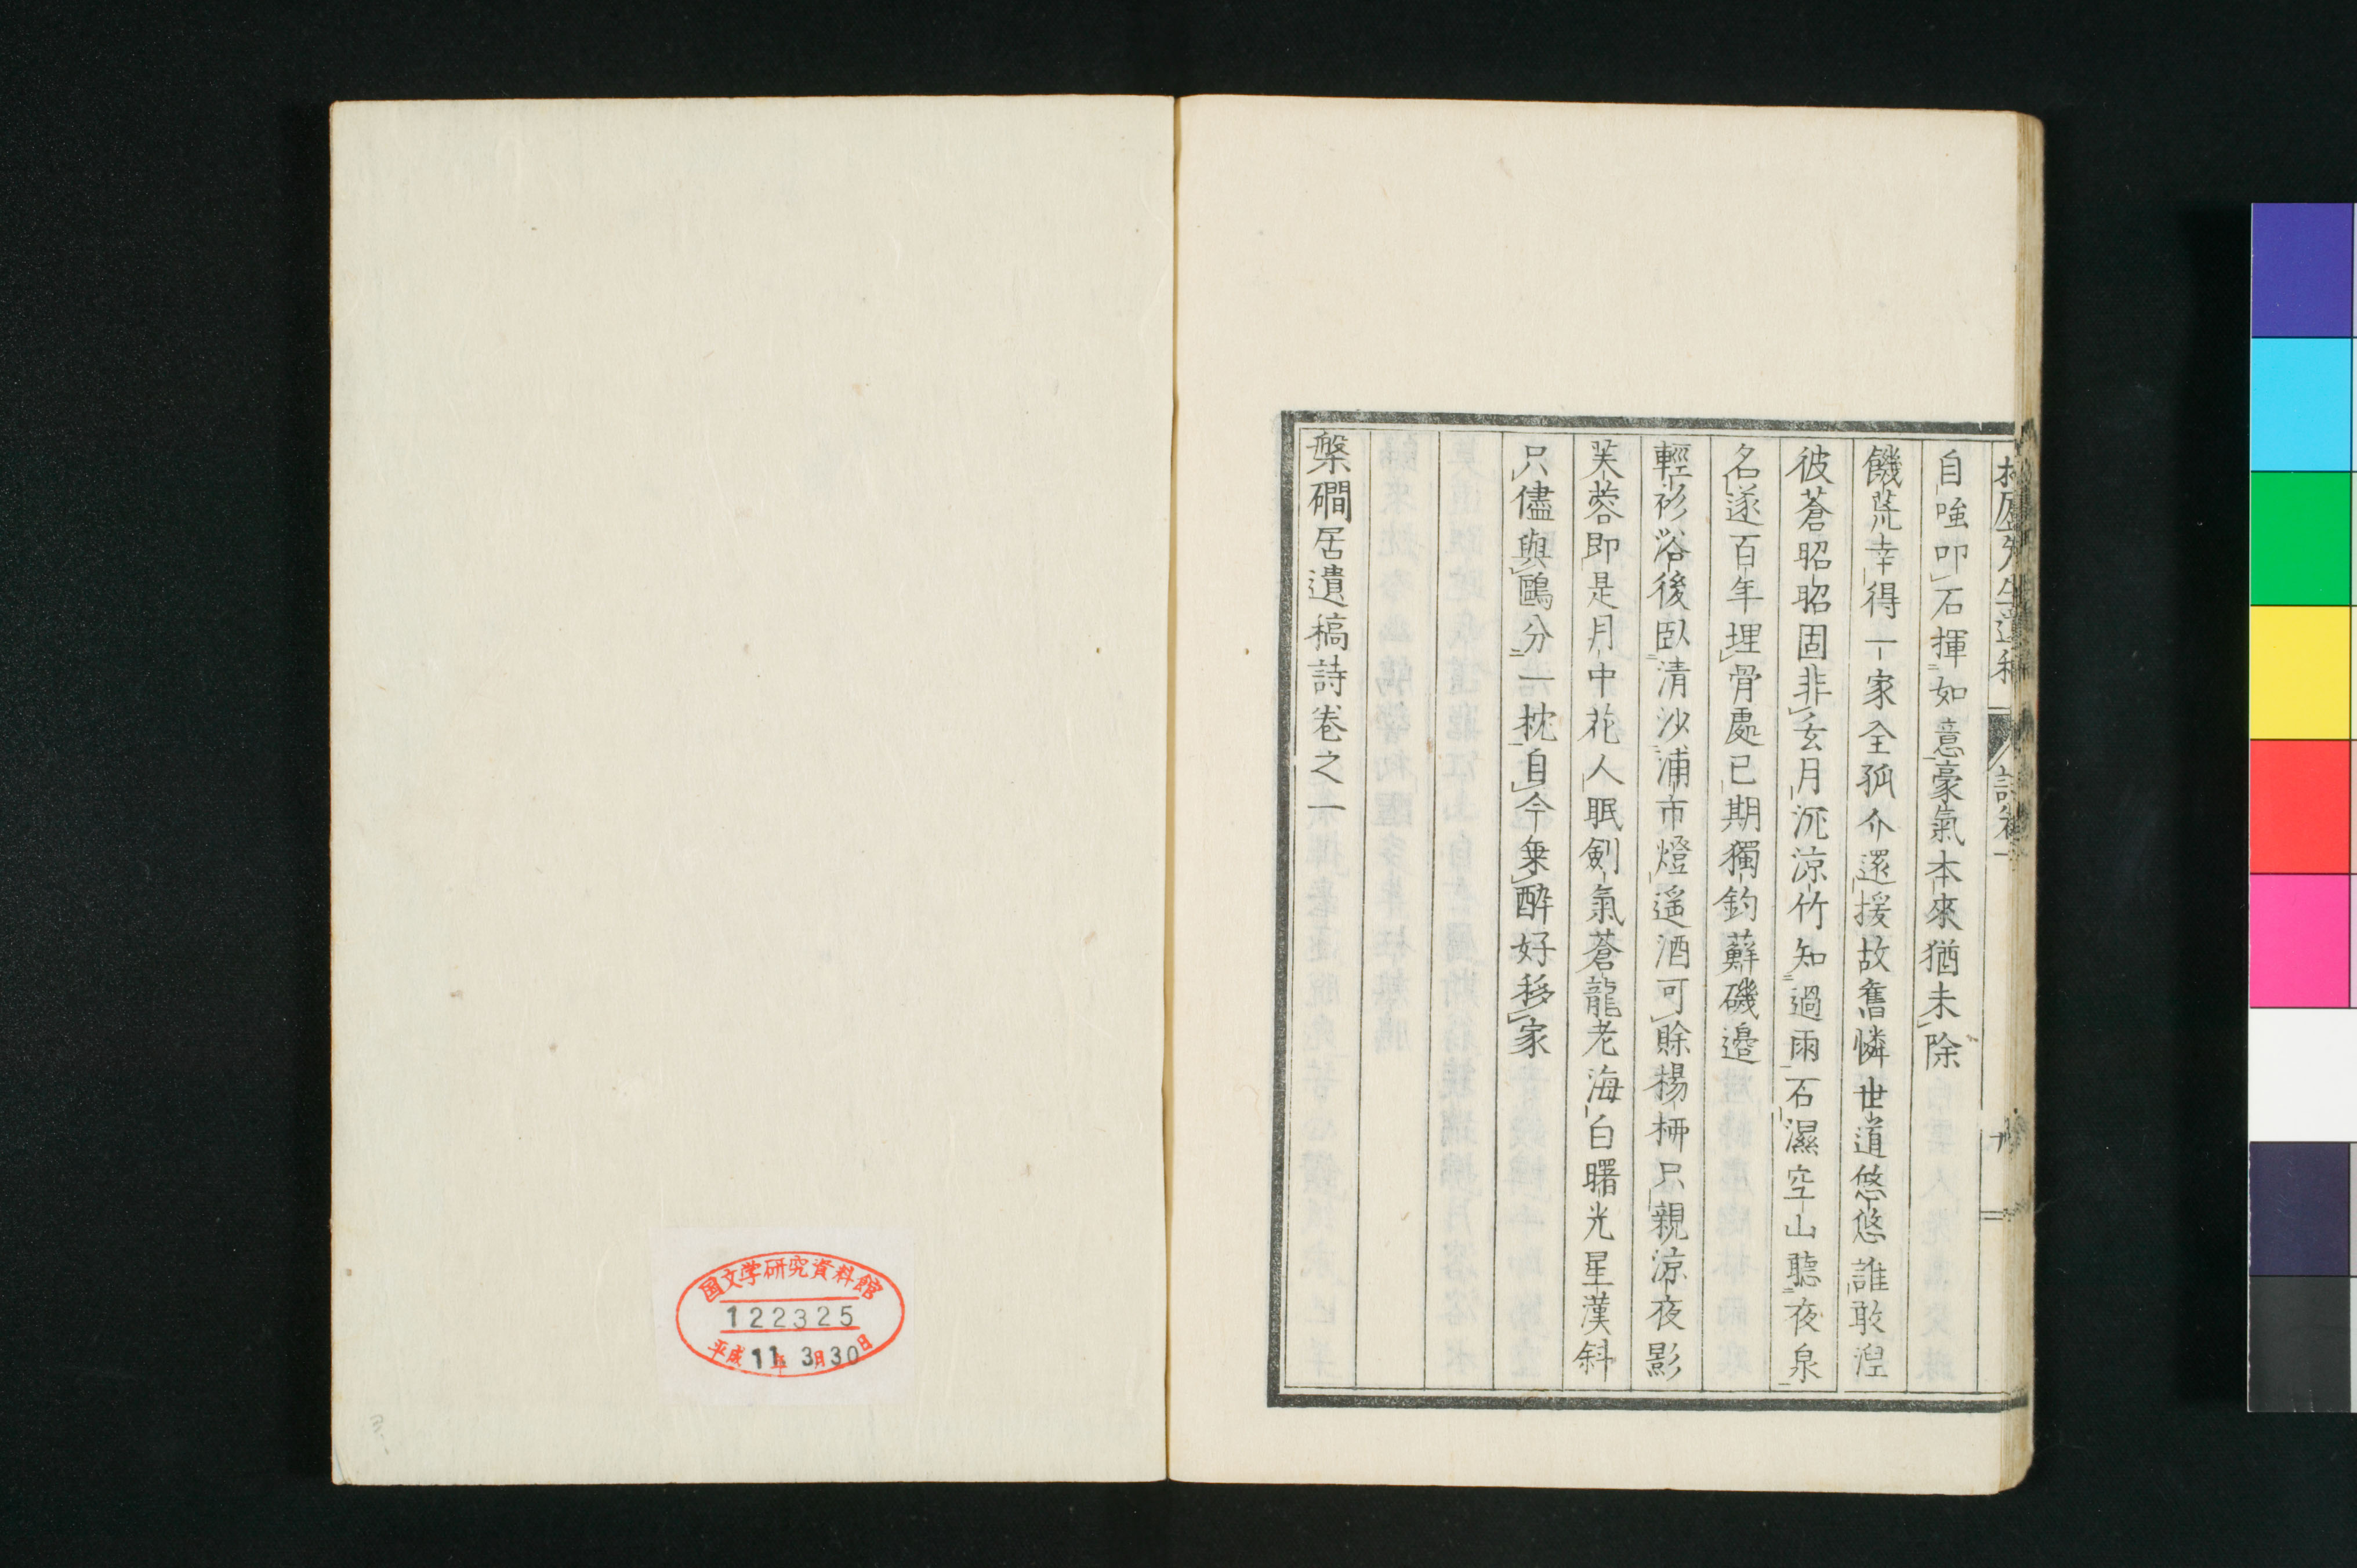 自嗤叩石揮如意豪氣本來猶未除
饑荒幸得一家全孤介還援故舊憐世道悠悠誰敢湼
彼蒼昭昭固非玄月沉涼竹知過雨石濕空山聽夜泉
名遂百年埋骨處已期獨釣蘚磯邊
輕衫浴後臥清沙浦市燈遥酒可賒楊柳只親涼夜影
芙蓉即是月中花人眠劍氣蒼龍老海白曙光星漢斜
只儘與鷗分一枕自今乗醉好移家
槃磵居遺稿詩卷之一
国文学研究資料館
122325
平成11年3月30日